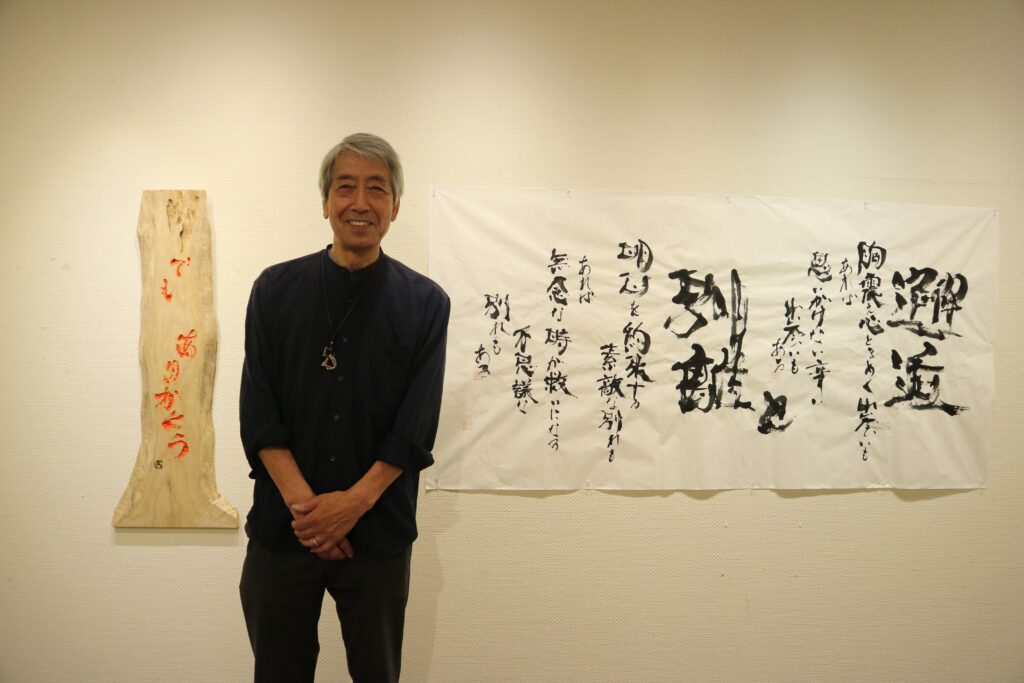 邂逅
胸震え心ときめく出会いも
あれば
思いがけない辛い
出会いもある
と
別離
明日を約束する
素敵な別れも
あれば
無念な時が救いになる
不思議な
別れもある
でも
ありがとう